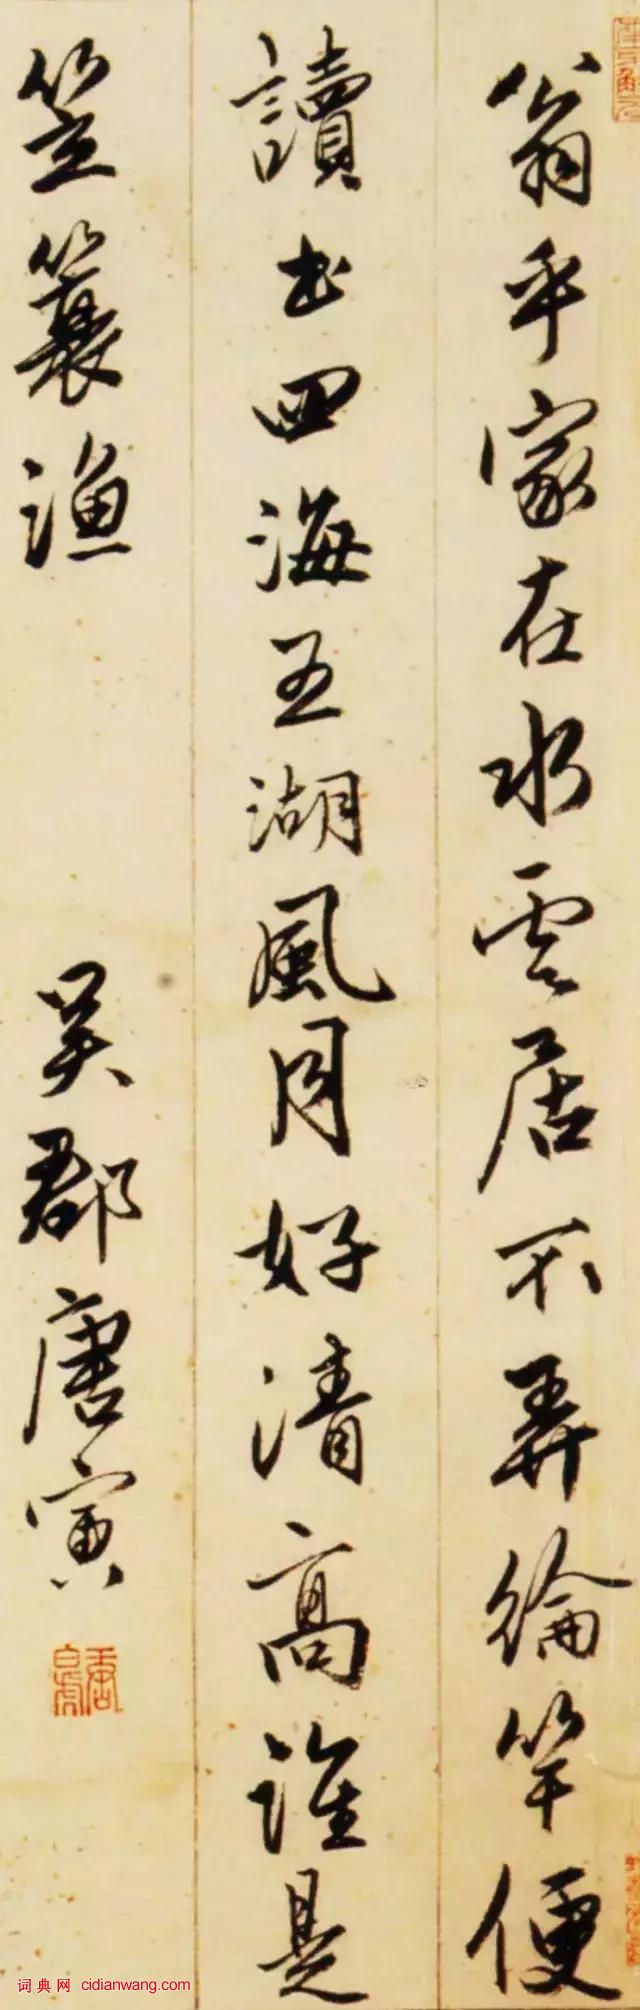 翁乎家在水雲居不弄綸竿便
讀书四海五湖風月好清高誰是
笠簑漁
吴郡唐寅
词典网 cidianwang.com